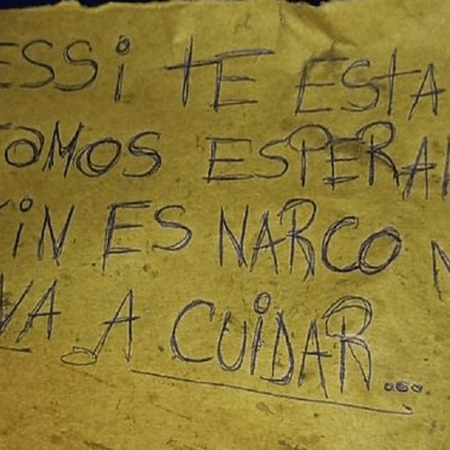 ESSi TE ESTA
TAMOS ESPERA
KiN ES NARCO N
VA A CUiDAR...